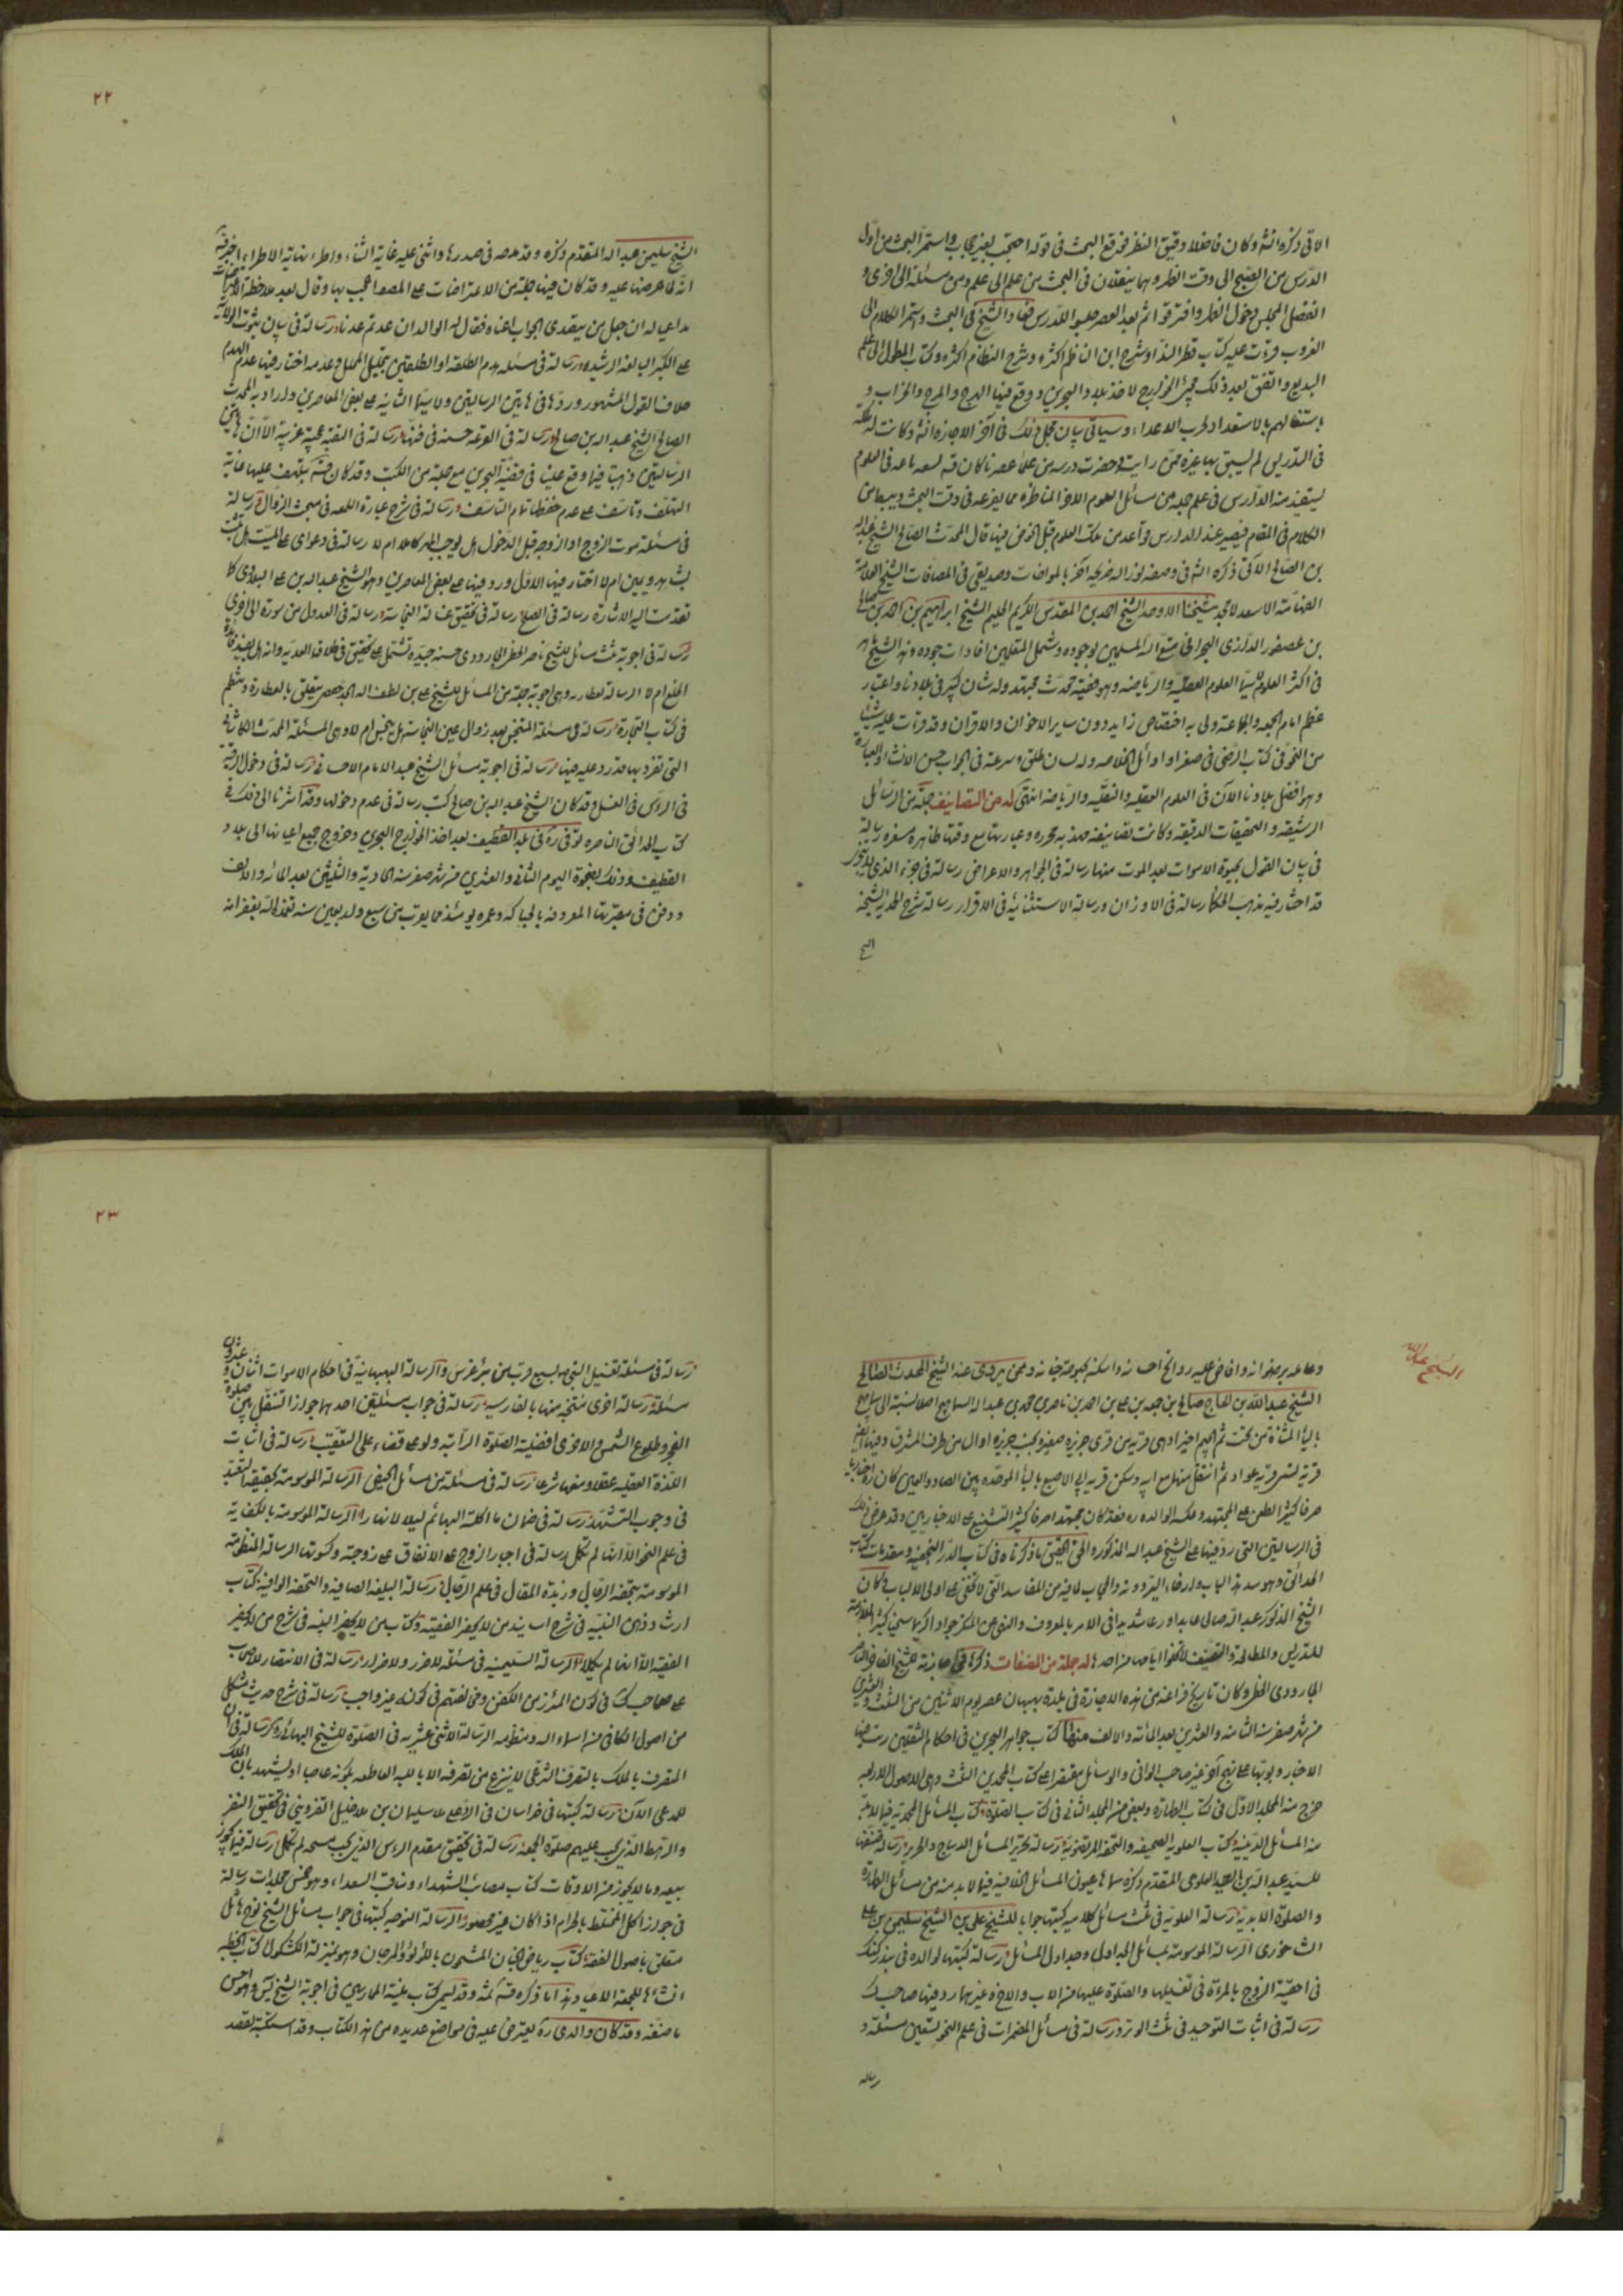 ٢٢
الاتى ذكره انشه وكان فاضلا دقيق النظر فوقع البحث فى قوله احتجب بغير حجاب واستمر البحث من اول
الدرس من الصبح الى وقت الظهر وهما ينتقلان فى البحث من علم الى علم ومن مسئلة الى اخرى و
انفض المجلس دخول الظهر وافترقوا ثم بعد العصر جلسوا للدرس فعاد الشيخ فى البحث واستمر الكلام الى
الغروب قرءت عليه كتاب قطر الندا وشرح ابن الناظم اكثره وشرح النظام اكثره وكتاب المطول الى علم
البديع واتفق بعد ذلك مجئ الخوارج لاخذ بلاد البحرين ووقع فيها الهرج والمرج والخراب و
اشتغالهم بالاستعداد لحرب الاعداء وسياتى بيان مجمل ذلك فى آخر الاجازه انشه وكانت له ملكة
فى التدريس لم يسبق بها غيره ممن رايت وحضرت درسه من علماء عصرنا كان قده لسعة باعه فى العلوم
يستفيد منه الدارس فى علم جملة من مسائل العلوم الاخر المناظره مما يفرعه فى وقت البحث ويبسط من
الكلام فى المقام فيصير عند الدارس قواعد من تلك العلوم قبل الخوض فيها قال المحدث الصالح الشيخ عبدالله
بن الصالح الآتى ذكره الله فى وصفه نور الله ضريحه آخر بالموافات وصديقى فى المصافات الشيخ العلامة
الفهامة الاسعد الامجد شيخنا الاوحد الشيخ احمد بن المقدس الكريم الحليم الشيخ ابراهيم بن احمد بن صالح
بن عصفور الدرازى البحرانى متع الله المسلمين بوجوده وشمل المتعلمين افادات جوده وهذا الشيخ ماهر
فى اكثر العلوم لاسيما العلوم العقلية والرياضية وهو فقيه محدث مجتهد وله شان كبير فى بلادنا واعتبار
عظيم امام الجمعة والجماعة ولى به اختصاص زايد دون ساير الاخوان والاقران وقد قرءت عليه شيئا
من النحو فى كتاب الرضى فى صغرى واوائل الخلاصه وله لسان طلق وسرعة فى الجواب حسن الانشاء والعبارة
وهو افضل بلادنا الآن فى العلوم العقلية والنقلية والرياضة انتهى له من التصانيف جملة من الرسائل
الرشيقه والتحقيقات الدقيقه وكانت تصانيفه مهذبه محرره وعبارتها مع دقتها ظاهرة مسفره رسالة
فى بيان القول بحيوة الاموات بعد الموت منها رسالة فى الجواهر والاعراض رسالة فى جزء الذى لا يتجزى
قد اختار فيه مذهب الحكماء رسالة فى الاوزان ورسالة الاستثنائيه فى الاقرار رسالة شرح الحمديه لشيخه
الشيخ
الشيخ سليمن عبدالله المتقدم ذكره وقد مدحه فى صدرها واثنى عليه غاية الثناء واطراه نهاية الاطراء واخبرنى
انه لما عرضها عليه وقد كان فيها جملة من الاعتراضات على المصنف اعجب بها وقال بعد ملاحظة الاعتراضات
على البكر البالغة الرشيده ورسالة فى مسئله هدم الطلقه او الطلقتين بتحليل المحلل وعدمه اختار فيها عدم الهدم
خلاف القول المشهور ورد ها فى هاتين الرسالتين ولاسيما الثانيه على بعض المعاصرين والمراد به المحدث
الصالح الشيخ عبدالله بن صالح ورسالة فى القرعه حسنه فى فنها ورسالة فى التقية عجيبة غريبة الا ان هاتين
الرسالتين ذهبتا فيما وقع علينا فى قضية البحرين مع جملة من الكتب وقد كان قده يتلهف عليها غاية
التلهف ويتاسف على عدم حفظها تمام التاسف ورسالة فى شرح عبارة اللمعه فى مبحث الزوال ورسالة
فى مسئله موت الزوج او الزوجه قبل الدخول هل يوجب المهر كاملا ام لا رسالة فى دعواى على الميت هل تثبت
بشاهد ويمين ام لا اختار فيها الاول ورد فيها على بعض المعاصرين وهو الشيخ عبدالله بن على البلادى كما
تقدمت اليه الاشارة رسالة فى الصلح رسالة فى تحقيق غسالة النجاسة ورسالة فى العدول من سورة الى اخرى
رسالة فى اجوبة ثلث مسائل للشيخ ناصر الخطى الجارودى حسنه جيدة تشتمل على تحقيق فى طلاقه العديه وانه هل يفيد فائدة
الخلع ام لا الرسالة العطاريه وهى اجوبة جملة من المسائل للشيخ على بن لطف الله الجدحفصى يتعلق بالعطارة وتنظم
فى كتاب التجارة ورسالة فى مسئلة المتنجس بعد زوال عين النجاسة هل ينجس ام لا وهى المسئلة المحدث الكاشانى
التى تفرد بها قد رد عليه فيها رسالة فى اجوبة مسائل الشيخ عبدالامام الاحسائى رسالة فى دخول الرقبة
فى الراس فى الغسل وقد كان الشيخ عبدالله بن صالح كتب رسالة فى عدم دخولها وقد اشرنا الى ذلك فى
كتاب الحدائق الناضره توفى ره فى بلد القطيف بعد اخذ الخوارج البحرين وخروج جميع اعيانها الى بلاد
القطيف وذلك بضحوة اليوم الثانى والعشرين من شهر صفر سنة الحادية والثلثين بعد المائه والالف
ودفن فى مقبرتها المعروفه بالحباكه وعمره يومئذ مما يقرب من سبع واربعين سنه تغمده الله بغفرانه
٢٣
الشيخ عبدالله
وعامله برضوانه وافاض عليه روائح احسانه واسكنه بحبوحة جنانه وعن من روى عنه الشيخ المحدث الصالح
الشيخ عبدالله بن الحاج صالح بن جمعه بن على بن احمد بن ناصر بن محمد بن عبدالله السماهيجى اصلا نسبة الى سماهيج
بالياء المثناة من تحت ثم الجيم اخيرا وهى قرية من قرى جزيره صغيره بجنب جزيره اوال من طرف المشرق وفيها ايضا
قرية تسمى قرية عراد ثم انتقل منها مع ابيه وسكن قرية ابى الاصبع بالباء الموحده بين الصاد والعين كان ره اخباريا
صرفا كثير الطعن على المجتهدين وعكسه الوالد ره فقد كان مجتهدا صرفا كثير التشنيع على الاخباريين وقد عرض ذلك
فى الرسالتين التى رد فيها على الشيخ عبدالله المذكور والحق الحقيق ما ذكرناه فى كتاب الدرر النجفيه ومقدمات كتاب
الحدائق وهو سد هذا الباب وارخاء الستر دونه والحجاب لما فيه من المفاسد التى لا تخفى على اولى الالباب وكان
الشيخ المذكور عبدالله صالحا عابدا ورعا شديدا فى الامر بالمعروف والنهى عن المنكر جوادا كريما سخيا كثير الملازمة
للتدريس والمطالعة والتصنيف لا تخلوا ايامه من احدها له جملة من المصنفات ذكرها فى اجازته للشيخ الفاخر ناصر
الجارودى الخطى وكان تاريخ فراغه من هذه الاجازة فى بلدة بهبهان عصر يوم الاثنين من الثلث والعشرين
من شهر صفر سنة الثامنه والعشرين بعد المائه والالف منها كتاب جواهر البحرين فى احكام الثقلين رتب فيها
الاخبار وبوبها على نهج آخر غير صاحب الوافى والوسائل مقتصرا على كتب المحمدين الثلث وهى الاصول الاربعه
خرج منه المجلد الاول فى كتاب الطهارة وبعض من المجلد الثانى فى كتاب الصلوة وكتاب المسائل المحمدية فيما لابد
منه المسائل الدينيه وكتاب العلويه الصحيفه والتحفه المرتضويه ورسالة تحرير المسائل الديباج والحرير ورسالة صنفها
للسيد عبدالله بن السيد العلوى المتقدم ذكره سماها عيون المسائل الخلافيه فيما لابد منه من مسائل الطهارة
والصلوة الابديه رسالة العلويه فى ثلث مسائل كلاميه كتبها جوابا للشيخ على بن الشيخ سليمن بن على
الشاخورى الرسالة الموسومة بمسائل الجداول وجداول المسائل ورسالة كتبها لوالده فى بندر كنك
فى احقية الزوج بالمراة فى تغسيلها والصلوة عليها من الاب والاخ وغيرهما رد فيها صاحب ك
رسالة فى اثبات التوحيد فى ثلث الوتر ورسالة فى مسائل المضمرات فى علم النحو تسعين مسئلة و
رسالة
رسالة فى مسئلة تغسيل النبى ص بسبع قرب من بئر غرس والرسالة البهبهانية فى احكام الاموات اثنان وعشرون
مسئلة رسالة اخرى منتخبة منها بالفارسيه رسالة فى جواب مسئلتين احدهما جواز التنفل بين صلوة
الفجر وطلوع الشمس والاخرى افضلية الصلوة الراتبه ولو على قضاء على التعقيب ورسالة فى اثبات
اللذة العقليه عقلا ومنعها شرعا رسالة فى مسئلة من مسائل الحيض الرسالة الموسومة بحقيقة التعبد
فى وجوب التشهد رسالة فى ضمان ما اكلته البهائم ليلا لا نهارا الرسالة الموسومة بالكفايه
فى علم النحو الا انها لم تكمل رسالة فى اجبار الزوج على الانفاق على زوجته وكسوتها الرسالة المنظومة
الموسومة بتحفة الرجال وزبدة المقال فى علم الرجال رسالة البلغه الصافيه والتحفه الوافيه كتاب
ارشاد ذهن النبيه فى شرح اسانيد من لا يحضر الفقيه وكتاب من لا يحضر النبيه فى شرح من لا يحضر
الفقيه الا انها لم يكملا الرسالة السليمنيه فى مسئله لا ضرر ولا ضرار رسالة فى الانتصار لاصحاب
على صاحب ك فى كون المئزر من الكفن ومخالفتهم فى كونه غير واجب رسالة فى شرح حديث مشكل
من اصول الكافى من اسماء الله ومنظومه الرسالة الاثنى عشريه فى الصلوة للشيخ البهائى ره رسالة فى ان
المتصرف بالملك بالتصرف الشرعى لا ينزع من تصرفه الا بالبينه القاطعه بكونه غاصبا او يشهد بان الملك
للمدعى الآن رسالة كتبها فى خراسان فى الرد على ملا سليمان بن ملا خليل القزوينى فى تحقيق النفر
والرهط الذين يجب عليهم صلوة الجمعة رسالة فى تحقيق مقدم الراس الذى يجب مسحه لم تكمل رسالة فيما يجوز
بيعه وما لا يجوز من الاوقات كتاب مصائب الشهداء ومناقب السعداء وهو خمس مجلدات رسالة
فى جواز اكل المختلط بالحرام اذا كان غير محصور الرسالة النوحيه كتبها فى جواب مسائل الشيخ نوح هائل
متعلق باصول الفقه كتاب رياض الجنان المشحون باللؤلؤ والمرجان وهو بمنزلة الكشكول كتاب الخطب
انشاها للجمعة الاعياد هذا ما ذكره قده ثمة وقد ليس كتاب منية الممارسين فى اجوبة الشيخ يس وهو احسن
ما صنفه وقد كان والدى ره يعترض عليه فى مواضع عديده من هذا الكتاب وقد استكتبه بقصد